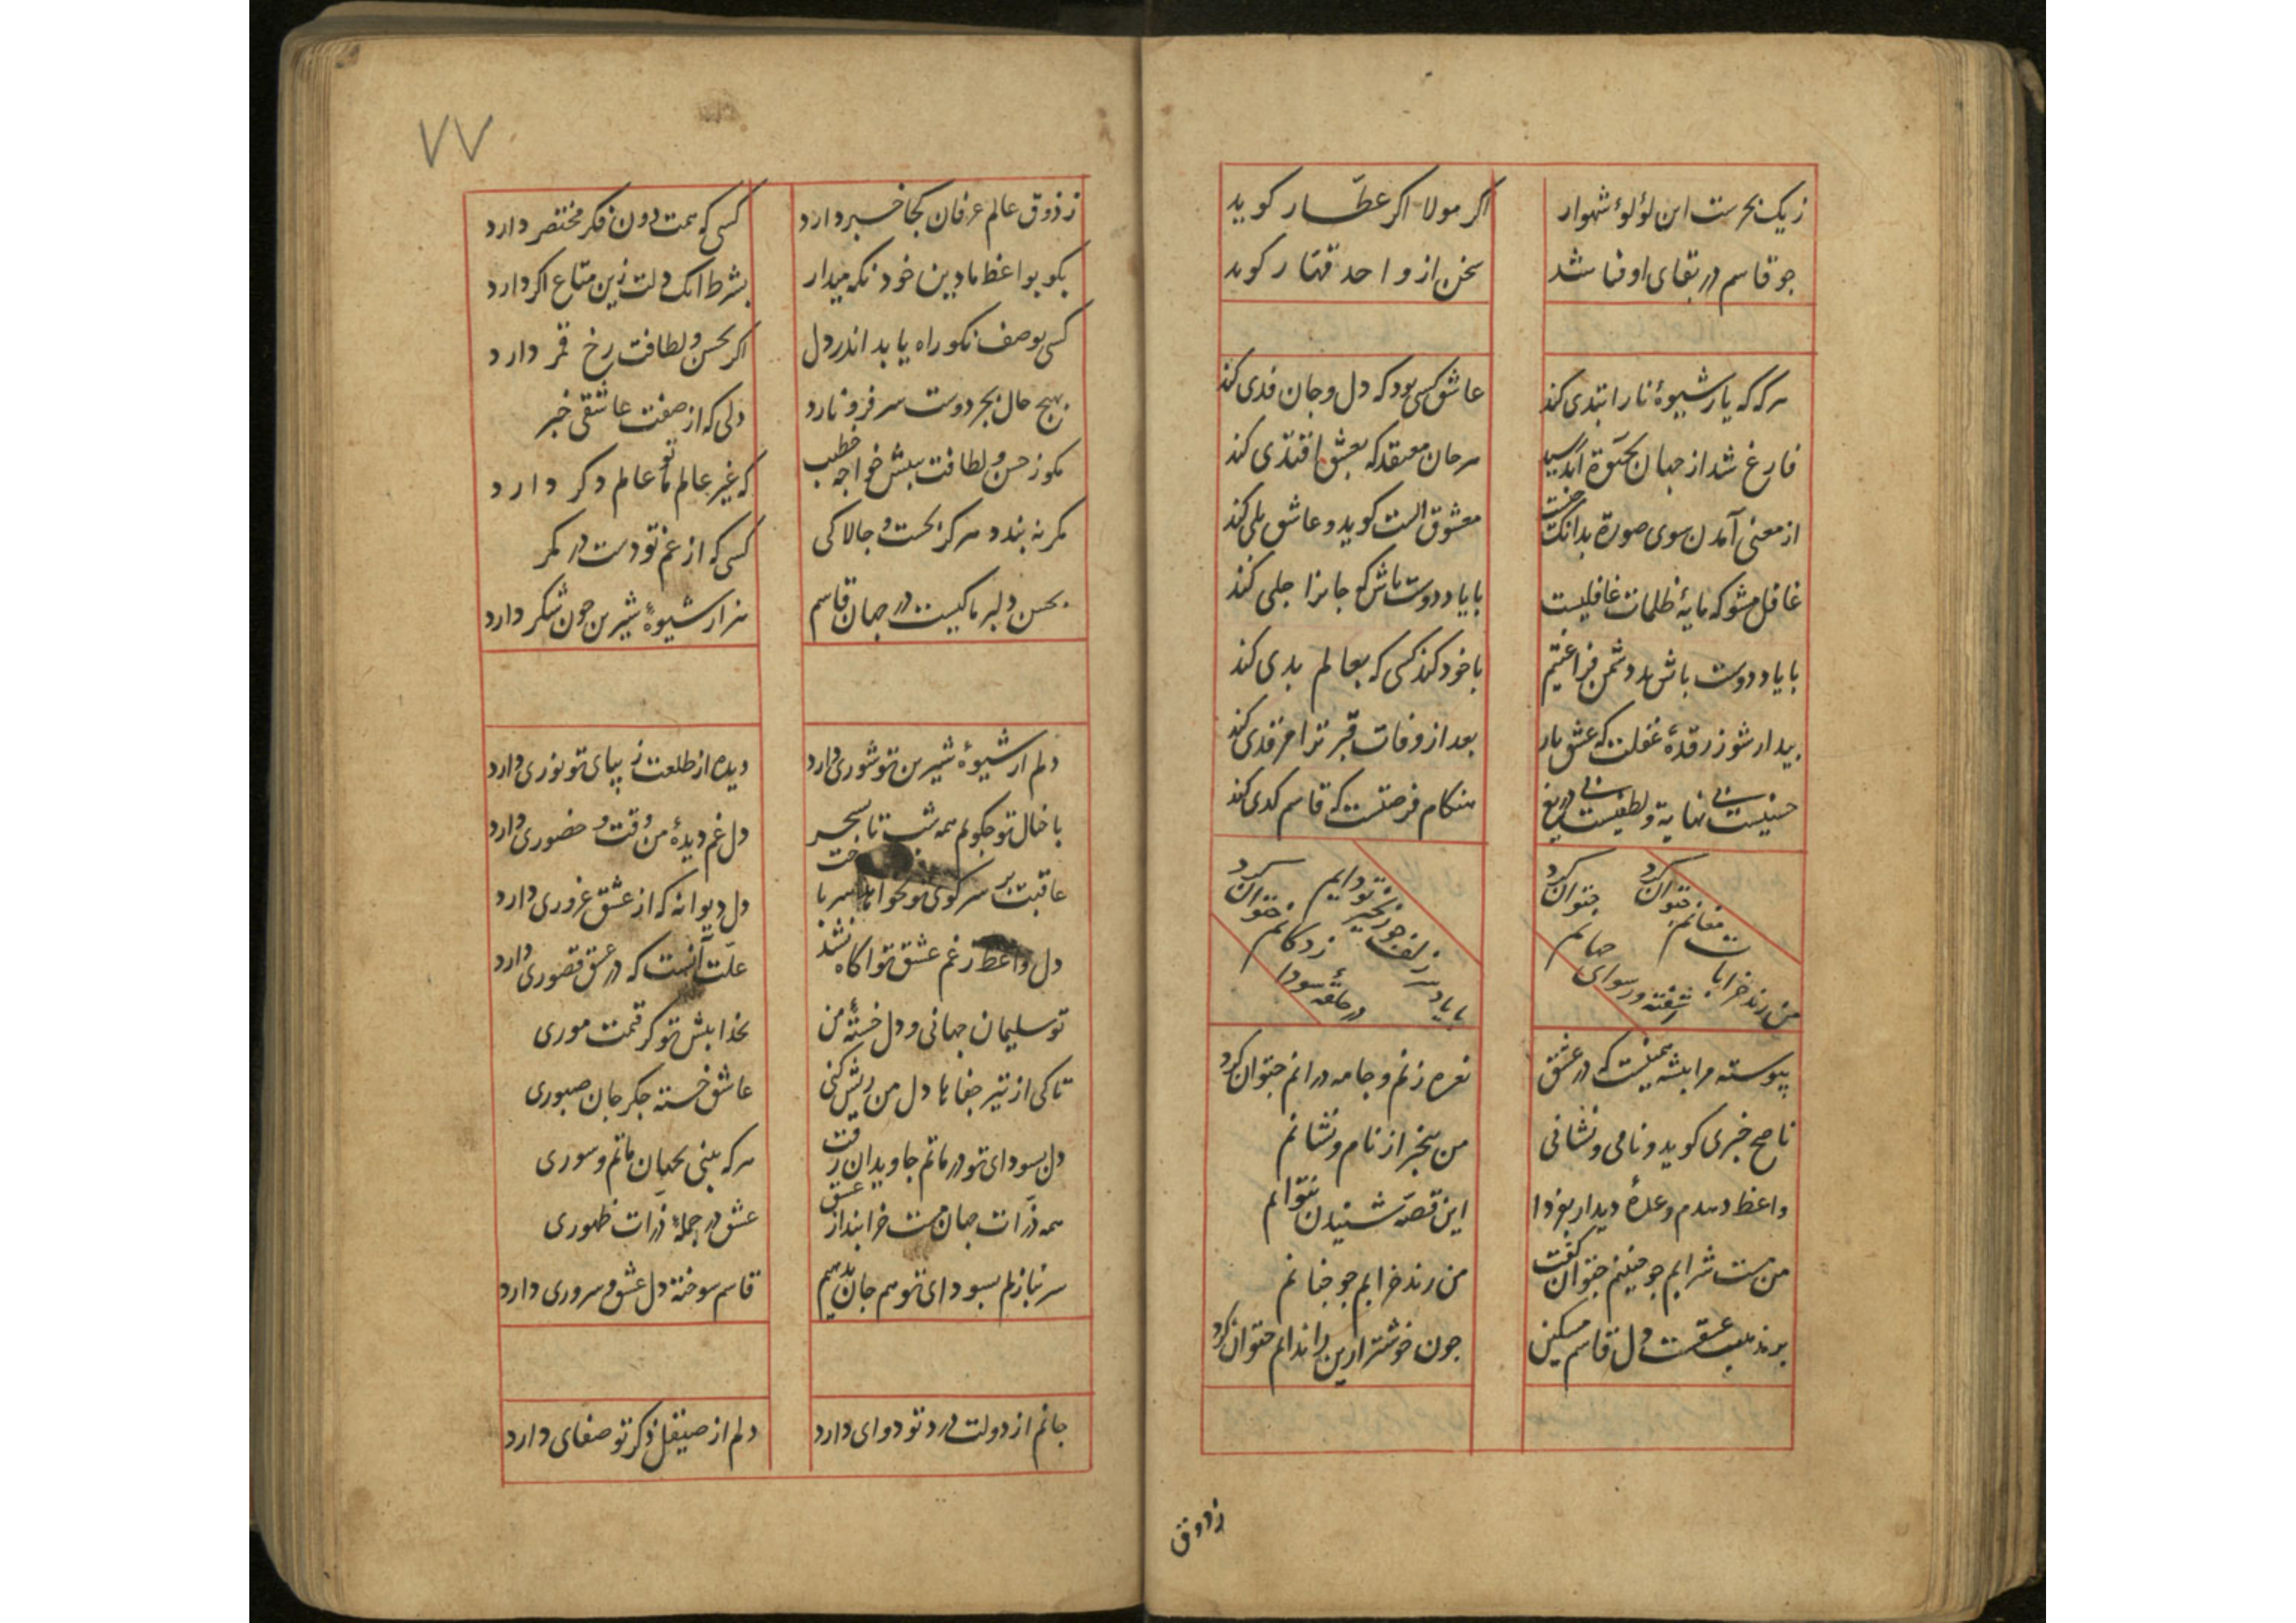 زیک بحرست این لؤلوء شهوار
اکر مولا اکر عطّار کوید
جو قاسم در بقای او فنا شد
سخن از واحد قهّار کوید
هرکه که یار شیوهٔ نار ابتدی کند
عاشق کسی بود که دل و جان فدی کند
فارغ شد از جهان بحیوة ابد رسید
هر جان معتقد که بعشق اقتدی کند
از معنی آمدن سوی صورة بدانکه جیست
معشوق الست کوید و عاشق بلی کند
غافل مشو که مایهٔ ظلمات غافلیست
با یاد دوست باش که جانرا جلی کند
با یاد دوست باش ز دشمن فراغتیم
با خود کند کسی که بعالم بدی کند
بیدار شو ز رقدهٔ غفلت که عشق یار
بعد از وفات قبر ترا مرقدی کند
حسنیست بی نهایة و لطفیست بی دریغ
هنکام فرصتست که قاسم کدی کند
من رند خرابات مغانم جتوان کرد
آشفته و رسوای جهانم جتوان کرد
با یاد سر زلف جو زنجیر تو دایم
در حلقهٔ سودا زدکانم جتوان کرد
پیوسته مرا پیشه همینست که در عشق
نعره زنم و جامه درانم جتوان کرد
ناصح خبری کوید و نامی و نشانی
من بیخبر از نام و نشانم
واعظ دهدم وعدهٔ دیدار بفردا
این قصّه شنیدن نتوانم
من مست شرابم جو جنینم جتوان کفت
من رند خرابم جو جنانم
بر مذهب عشقست دل قاسم مسکین
جون خوشتر ازین راه ندانم جتوان کرد
زذوق
۷۷
ز ذوق عالم عرفان کجا خبر دارد
کسی که همت دون فکر مختصر دارد
بکو بواعظ ما دین خود نکه میدار
بشرط آنک دلت زین متاع اکر دارد
کسی بوصف نکو راه یابد اندر دل
اکر بحسن و لطافت رخ قمر دارد
بهیج حال بجز دوست سر فرو نارد
دلی که از صفت عاشقی خبر
مکو ز حسن و لطافت ببیش خواجه خطیب
که غیر عالم ما تو عالم دکر دارد
کمر نه بندد هرکز بحست و جالاکی
کسی که از غم تو دست در کمر
بحسن دلبر ما کیست در جهان قاسم
هزار شیوهٔ شیرین جون شکر دارد
دلم از شیوهٔ شیرین تو شوری دارد
دیده از طلعت زیبای تو نوری دارد
با خیال تو جکویم همه شب تا بسحر
دل غم دیدهٔ من وقت و حضوری دارد
عاقبت بر سر کوی تو بخواهد سر باخت
دل دیوانه که از عشق غروری دارد
دل واعظ ز غم عشق تو آکاه نشد
علّت آنست که در عشق قصوری دارد
تو سلیمان جهانی و دل خستهٔ من
بخدا بیش تو کر قیمت موری
تا کی از تیر جفاها دل من ریش کنی
عاشق خسته جکر جان صبوری
دل بسودای تو در ماتم جاویدان رفت
هرکه بینی بجهان ماتم و سوری
همه ذرّات جهان مست خرابند از عشق
عشق در جملهٔ ذرّات ظهوری
سر نبازیم بسودای تو هم جان بدهیم
قاسم سوخته دل عشق و سروری دارد
جانم از دولت درد تو دوای دارد
دلم از صیقل ذکر تو صفای دارد